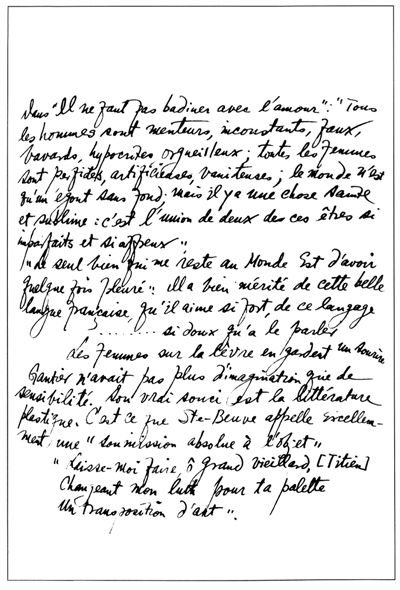 Dans "Il ne faut pas badiner avec l'amour": "Tous
les hommes sont menteurs, inconstants, faux,
bavards, hypocrites orgueilleux; toutes les femmes
sont perfides, artificieuses, vaniteuses; le monde n'est
qu'un égout sans fond; mais il y a une chose sainte
et sublime: c'est l'union de deux des ces êtres si
imparfaits et si affreux"
"Le seul bien qui me reste au Monde Est d'avoir
quelque fois pleuré": Il a bien mérité de cette belle
langue française, qu'il aime si fort, de ce langage
......... si doux qu'à le parler
Les femmes sur la lèvre en gardent un sourire
Gautier n'avait pas plus d'imagination que de
sensibilité. Son vrai souci est la littérature
plastique. C'est ce que Ste-Beuve appelle excellem-
ment une "soumission absolue à l'objet"
"Laisse-moi faire, ô grand vieillard, [Titien]
Changeant mon luth pour ta palette
Un transposition d'art".